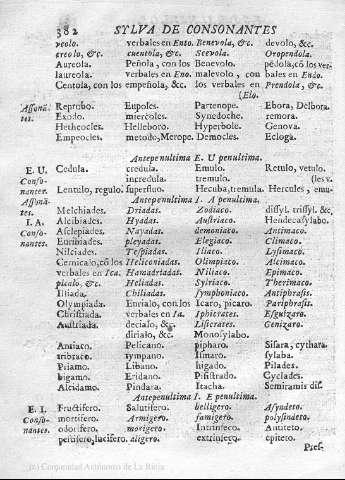 382 SYLVA DE CONSONANTES
veolo. verbales en Ento. Benevola, &c. devolo, &c.
creolo, &c. cuentola, &c. Scevola. Oropendola.
Aureola. Peñola, con los Benevolo. pèdola, cõ los ver-
laureola. verbales en Eno. malevolo, con bales en Endo.
Centola, con los empeñola, &c. los verbales en Prendola, &c.
(Elo.
Assonã-tes. Reprobo. Eupoles. Partenope. Ebora, Desbora.
Exodo. miercoles. Synedoche. remora.
Hetheocles. Helleboro. Hyperbole. Genova.
Empeocles. metodo, Merope. Democles. Ecloga.
Antepenultima E. U penultima.
E. U. Cedula. credula. Emulo. Retulo, vetulo.
Conso- incredula. tremulo. (les v.
nantes. Lentulo, regulo. superfluo. Hecuba, tremula. Hercules, emu-
Assonã- Antepenultima I. A penultima.
tes. Melchiades. Driadas. Zodiaco. dissyl. trissyl. &c.
I. A. Alcibiades. Hyadas. Austriaco. Hendecasylabo.
Conso- Asclepiades. Nayadas. demoniaco. Antimaco.
nantes. Euribiades. pleyadas. Elegiaco. Climaco.
Nilciades. Tespiadas. Iliaco. Lysimaco.
Cernicalo, cõ los Heliconiadas. Olimpiaco. Altimaco.
verbales en Ica. Hamadriadas. Niliaco. Epimaco.
picalo, &c. Heliadas. Syiriaco. Therimaco.
Illiada. Chiliadas. Symphoniaco. Antiphrasis.
Olympiada. Enrialo, con los Icaro, picaro. Pariphrasis.
Christiada. verbales en Ia. Iphicrates. Esguizaro.
Austriada. decialo, &c. Liscrates. Genizaro.
dirialo, &c. Monosylabo.
Antiaco. Pelicano. pipharo. Sisara, cythara.
tribraco. tympano. Ismaro. sylaba.
Priamo. Libano. higado. Pilades.
bigamo. Eridano. Pisistrado. Cyclades.
Alcidamo. Pindara. Itacha. Semiramis dis.
Antepenultima I. E penultima.
E. I. Fructifero. Salutifero. belligero. Asyndeto.
Conso- mortifero. Armigero. famigero. polysindeto.
nantes. odorifero. morigero. Intrinseco. Anuteto.
pestifero, lucifero. aligero. extrinseco. epiteto.
Pref-
(c) Comunidad Autónoma de La Rioja